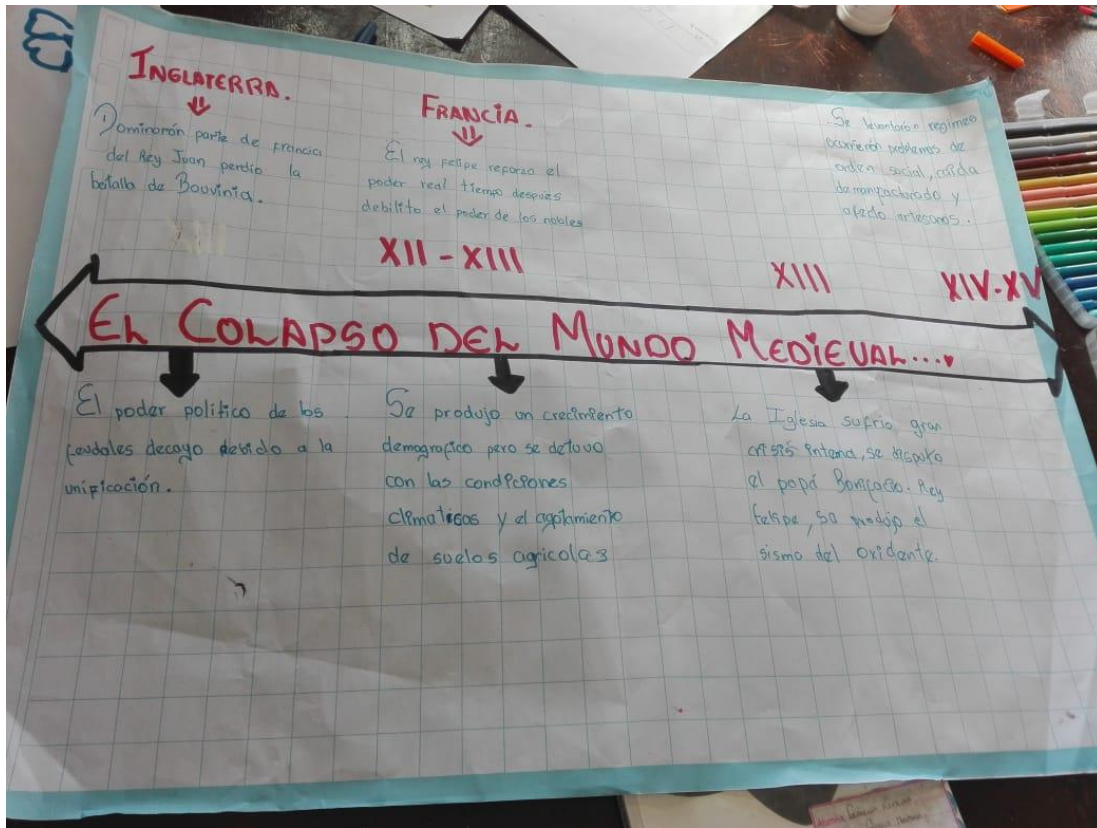 INGLATERRA.
Dominarón parte de francia
del Rey Juan perdio la
batalla de Bouvinia.
FRANCIA.
El rey felipe reparzo el
poder real tiempo despues
debilito el poder de los nobles
Se levantarón regimes
ocurrierón problemas de
orden social, caida
de manufacturado y
afecto artesanos.
XII - XIII
XIII
XIV-XV
EL COLAPSO DEL MUNDO MEDIEVAL....
El poder politico de los
feudales decayo debido a la
unificación.
Se produjo un crecimiento
demografico pero se detuvo
con las condiciones
climaticas y el agotamiento
de suelos agricolas
La Iglesia sufrio gran
crisis interna, se disputo
el papá Bonifacio. Rey
felipe, se produjo el
sismo del oxidente.